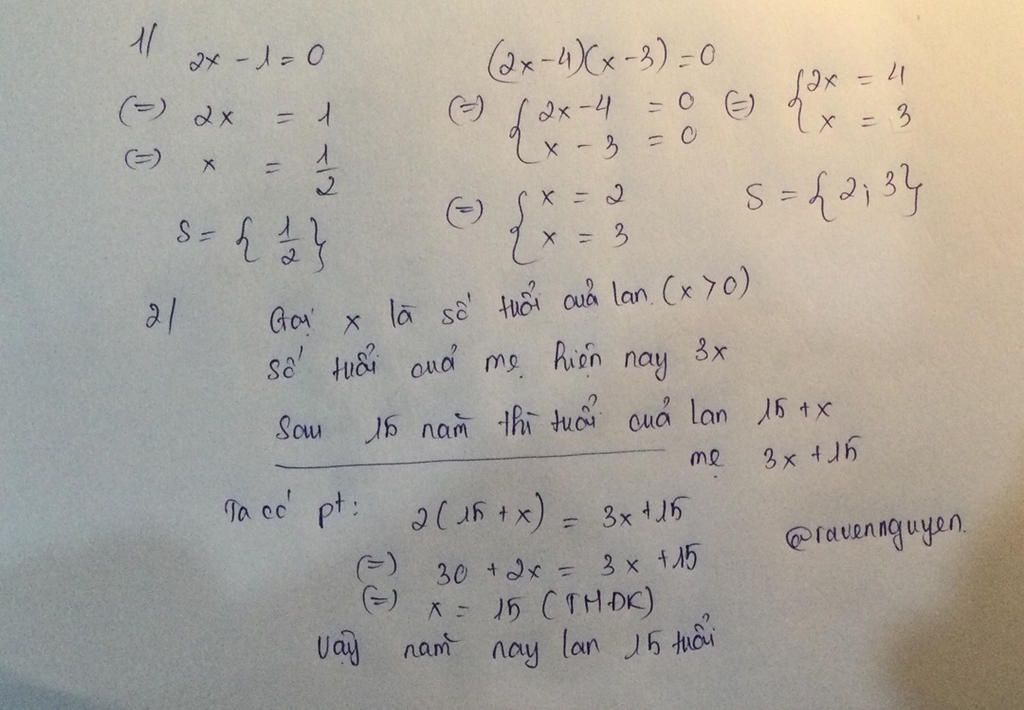 1/
2x - 1 = 0
(=) 2x = 1
(=) x = 1/2
S = { 1/2 }
(2x-4)(x-3) = 0
(=) { 2x-4 = 0
x - 3 = 0
(=) { 2x = 4
x = 3
(=) { x = 2
x = 3
S = {2; 3}
2/ Gọi x là số tuổi cuả lan. (x > 0)
Số tuổi cuả mẹ hiện nay 3x
Sau 15 năm thì tuổi cuả lan 15 + x
mẹ 3x + 15
Ta có pt: 2(15 + x) = 3x + 15
(=) 30 + 2x = 3x + 15
(=) x = 15 (TMĐK)
Vậy năm nay lan 15 tuổi
@ravennguyen.